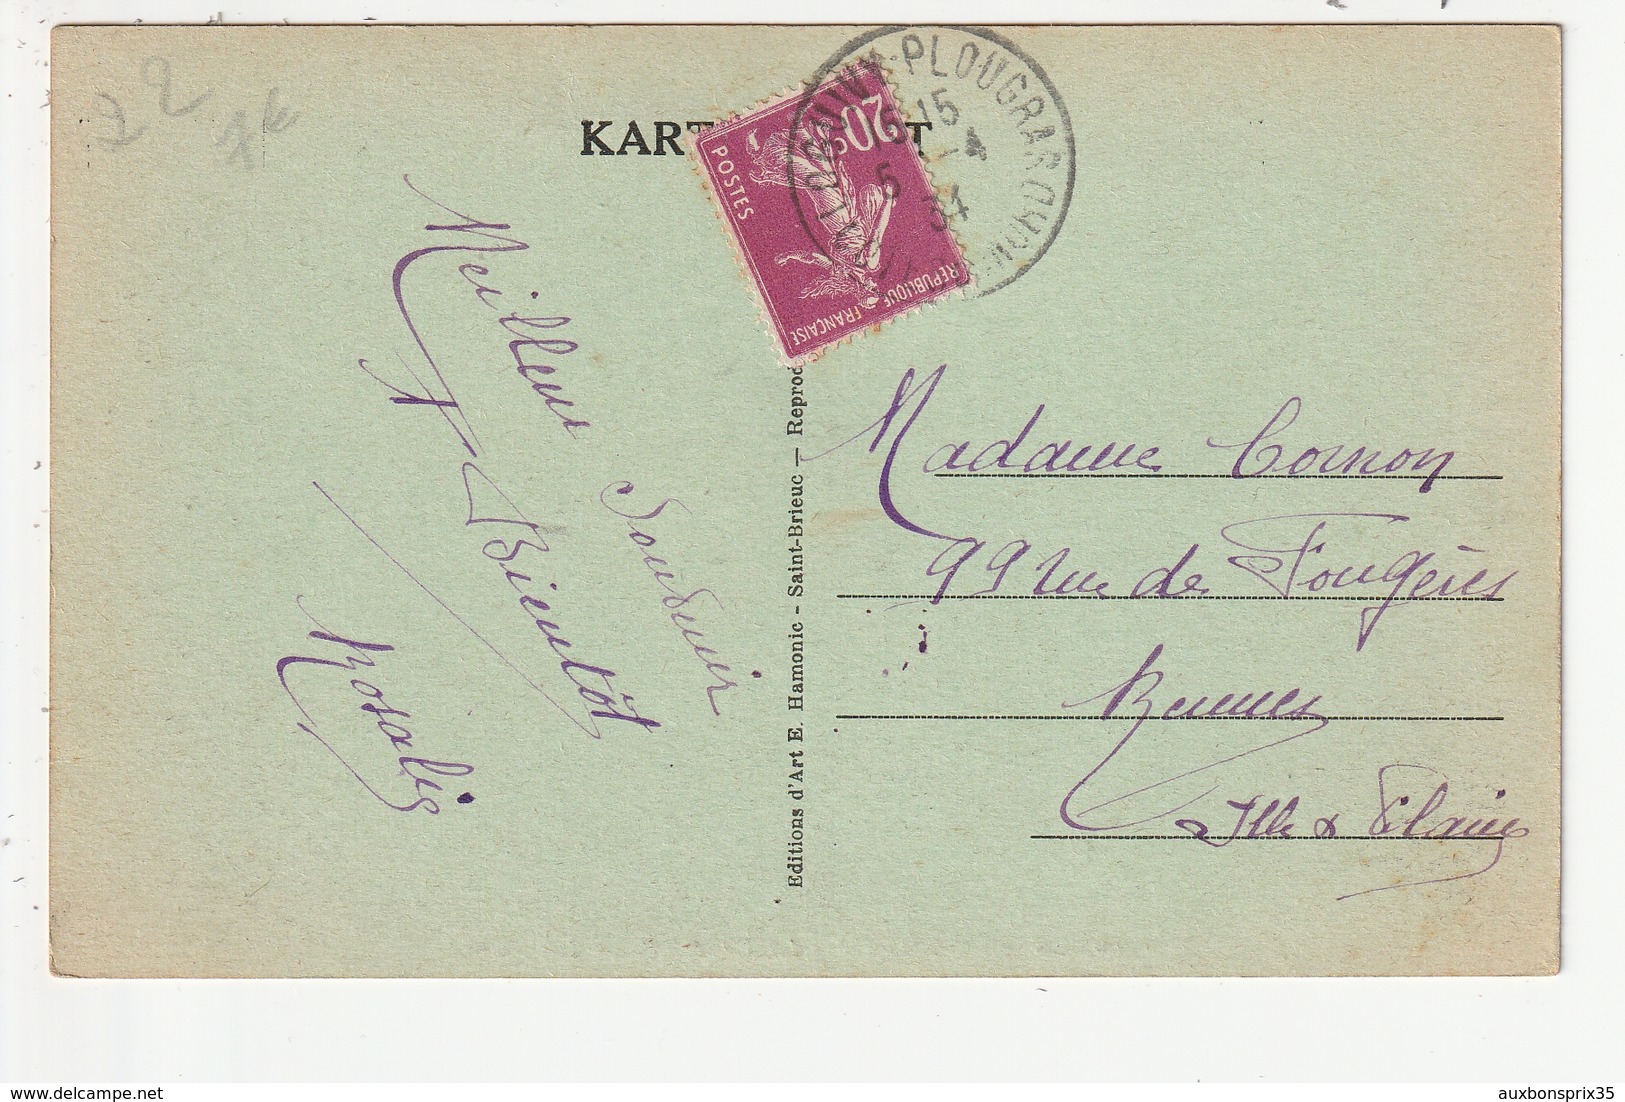 22
1€
KART
T
POSTES
20c
REPUBLIQUE FRANÇAISE
PLOUGRAS
15
5 -4
34
Meilleur Souvenir
A Bientôt
Rosalie
Editions d'Art E. Hamonic - Saint-Brieuc — Reprod
Madame Cornon
99 rue de Fougères
Rennes
Ille & Vilaine
delcampe.net
auxbonsprix35